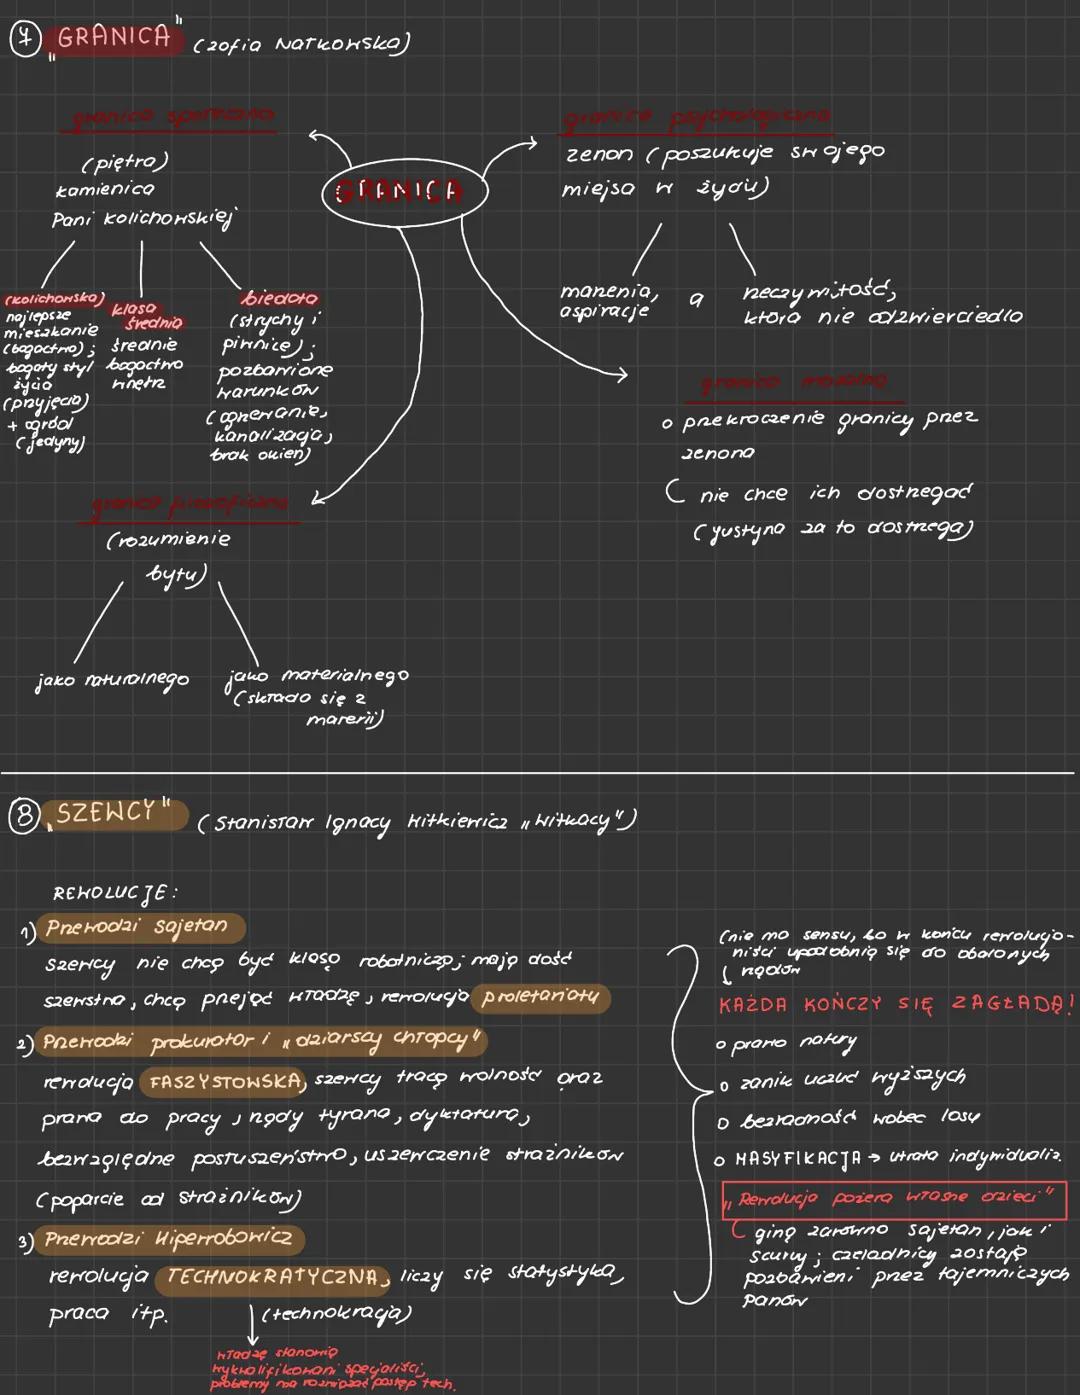 7 „GRANICA" (Zofia Nałkowska)
granica społeczna
(piętra)
kamienica
Pani Kolichowskiej
(Kolichowska)
najlepsze
mieszkanie
(bogactwo);
bogaty styl
życia
(przyjęcia)
+ ogród
(jedyny)
klasa
średnia
średnie
bogactwo
wnętrz
biedota
(strychy i
piwnice);
pozbawione
warunków
(ogrzewanie,
kanalizacja,
brak okien)
GRANICA
granica psychologiczna
Zenon (poszukuje swojego
miejsa w życiu)
marzenia,
aspiracje
a
rzeczywitość,
która nie odzwierciedla
granica moralna
o przekroczenie granicy przez
Zenona
nie chce ich dostrzegać
(Justyna za to dostrzega)
granica filozoficzna
(rozumienie
bytu)
jako naturalnego
jako materialnego
(składa się z
materii)
8 „SZEWCY" (Stanisław Ignacy Witkiewicz „Witkacy")
REWOLUCJE:
1) Przewodzi Sajetan
szewcy nie chcą być klasą robotniczą; mają dość
szewstwa, chcą przejąć władzę, rewolucja proletariatu
2) Przewodzi prokurator i „dziarscy chłopcy"
rewolucja FASZYSTOWSKA, szewcy tracą wolność oraz
prawa do pracy, rządy tyrana, dyktatura,
bezwzględne posłuszeństwo, uszewczenie strażników
(poparcie od strażników)
3) Przewodzi Hiperrobowicz
rewolucja TECHNOKRATYCZNA, liczy się statystyka,
praca itp.
(technokracja)
władzę stanowią
wykwalifikowani specjaliści,
problemy ma rozwiązać postęp tech.
(nie ma sensu, bo w końcu rewolucjo-
niści upodobnią się do obalonych
rządów
KAŻDA KOŃCZY SIĘ ZAGŁADĄ!
o prawo natury
o zanik uczuć wyższych
o bezradność wobec losu
o MASYFIKACJA → utrata indywidualiz.
„Rewolucja pożera własne dzieci"
giną zarówno Sajetan, jak i
Scurvy; czeladnicy zostają
pozbawieni przez tajemniczych
panów